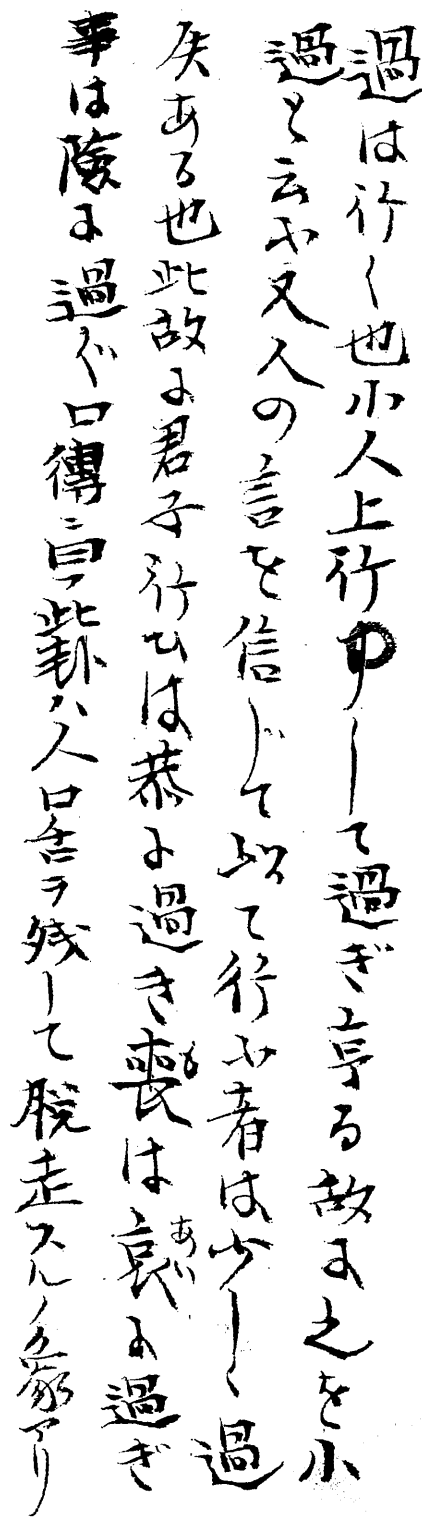 過は行く也小人上行中して過ぎ亨る故に之を小
過と云ふ又人の言を信じて以て行ふ者は少しく過
戻ある也此故に君子行ひは恭に過き喪もは哀あいに過ぎ
事は険に過ぐ口傳ニ曰ク此卦ハ人口舌ヲ残して脱走スルノ象アリ